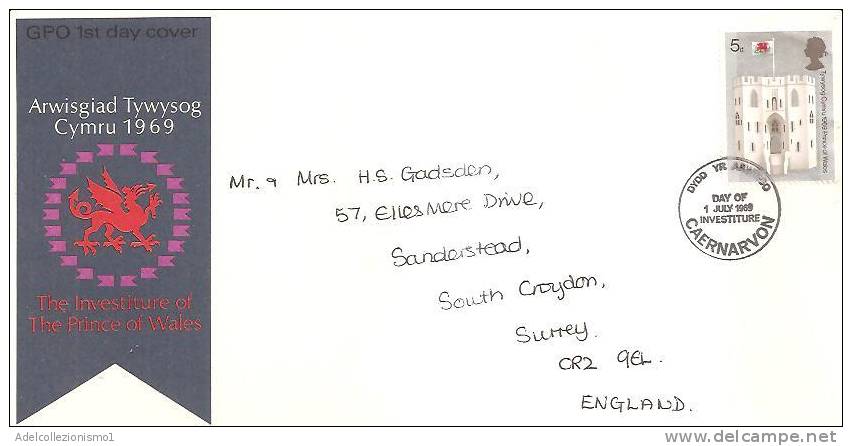 GPO 1st day cover
Arwisgiad Tywysog
Cymru 1969
The Investiture of
The Prince of Wales
5d
Tywysog Cymru 1969 Prince of Wales
DYDD YR
DAY OF
1 JULY 1969
INVESTITURE
CAERNARVON
Mr. & Mrs. H.S. Gadsden,
57, Ellesmere Drive,
Sanderstead,
South Croydon,
Surrey.
CR2 9EL.
ENGLAND.
Adelcollezionismo1
delcampe.net